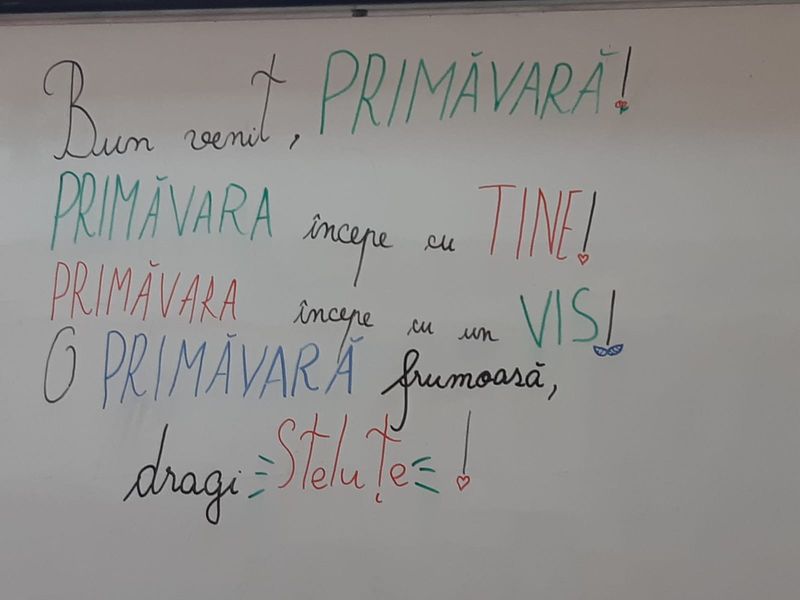 Bun venit, PRIMĂVARĂ!
PRIMĂVARA începe cu TINE!
PRIMĂVARA începe cu un VIS!
O PRIMĂVARĂ frumoasă,
dragi Steluțe!